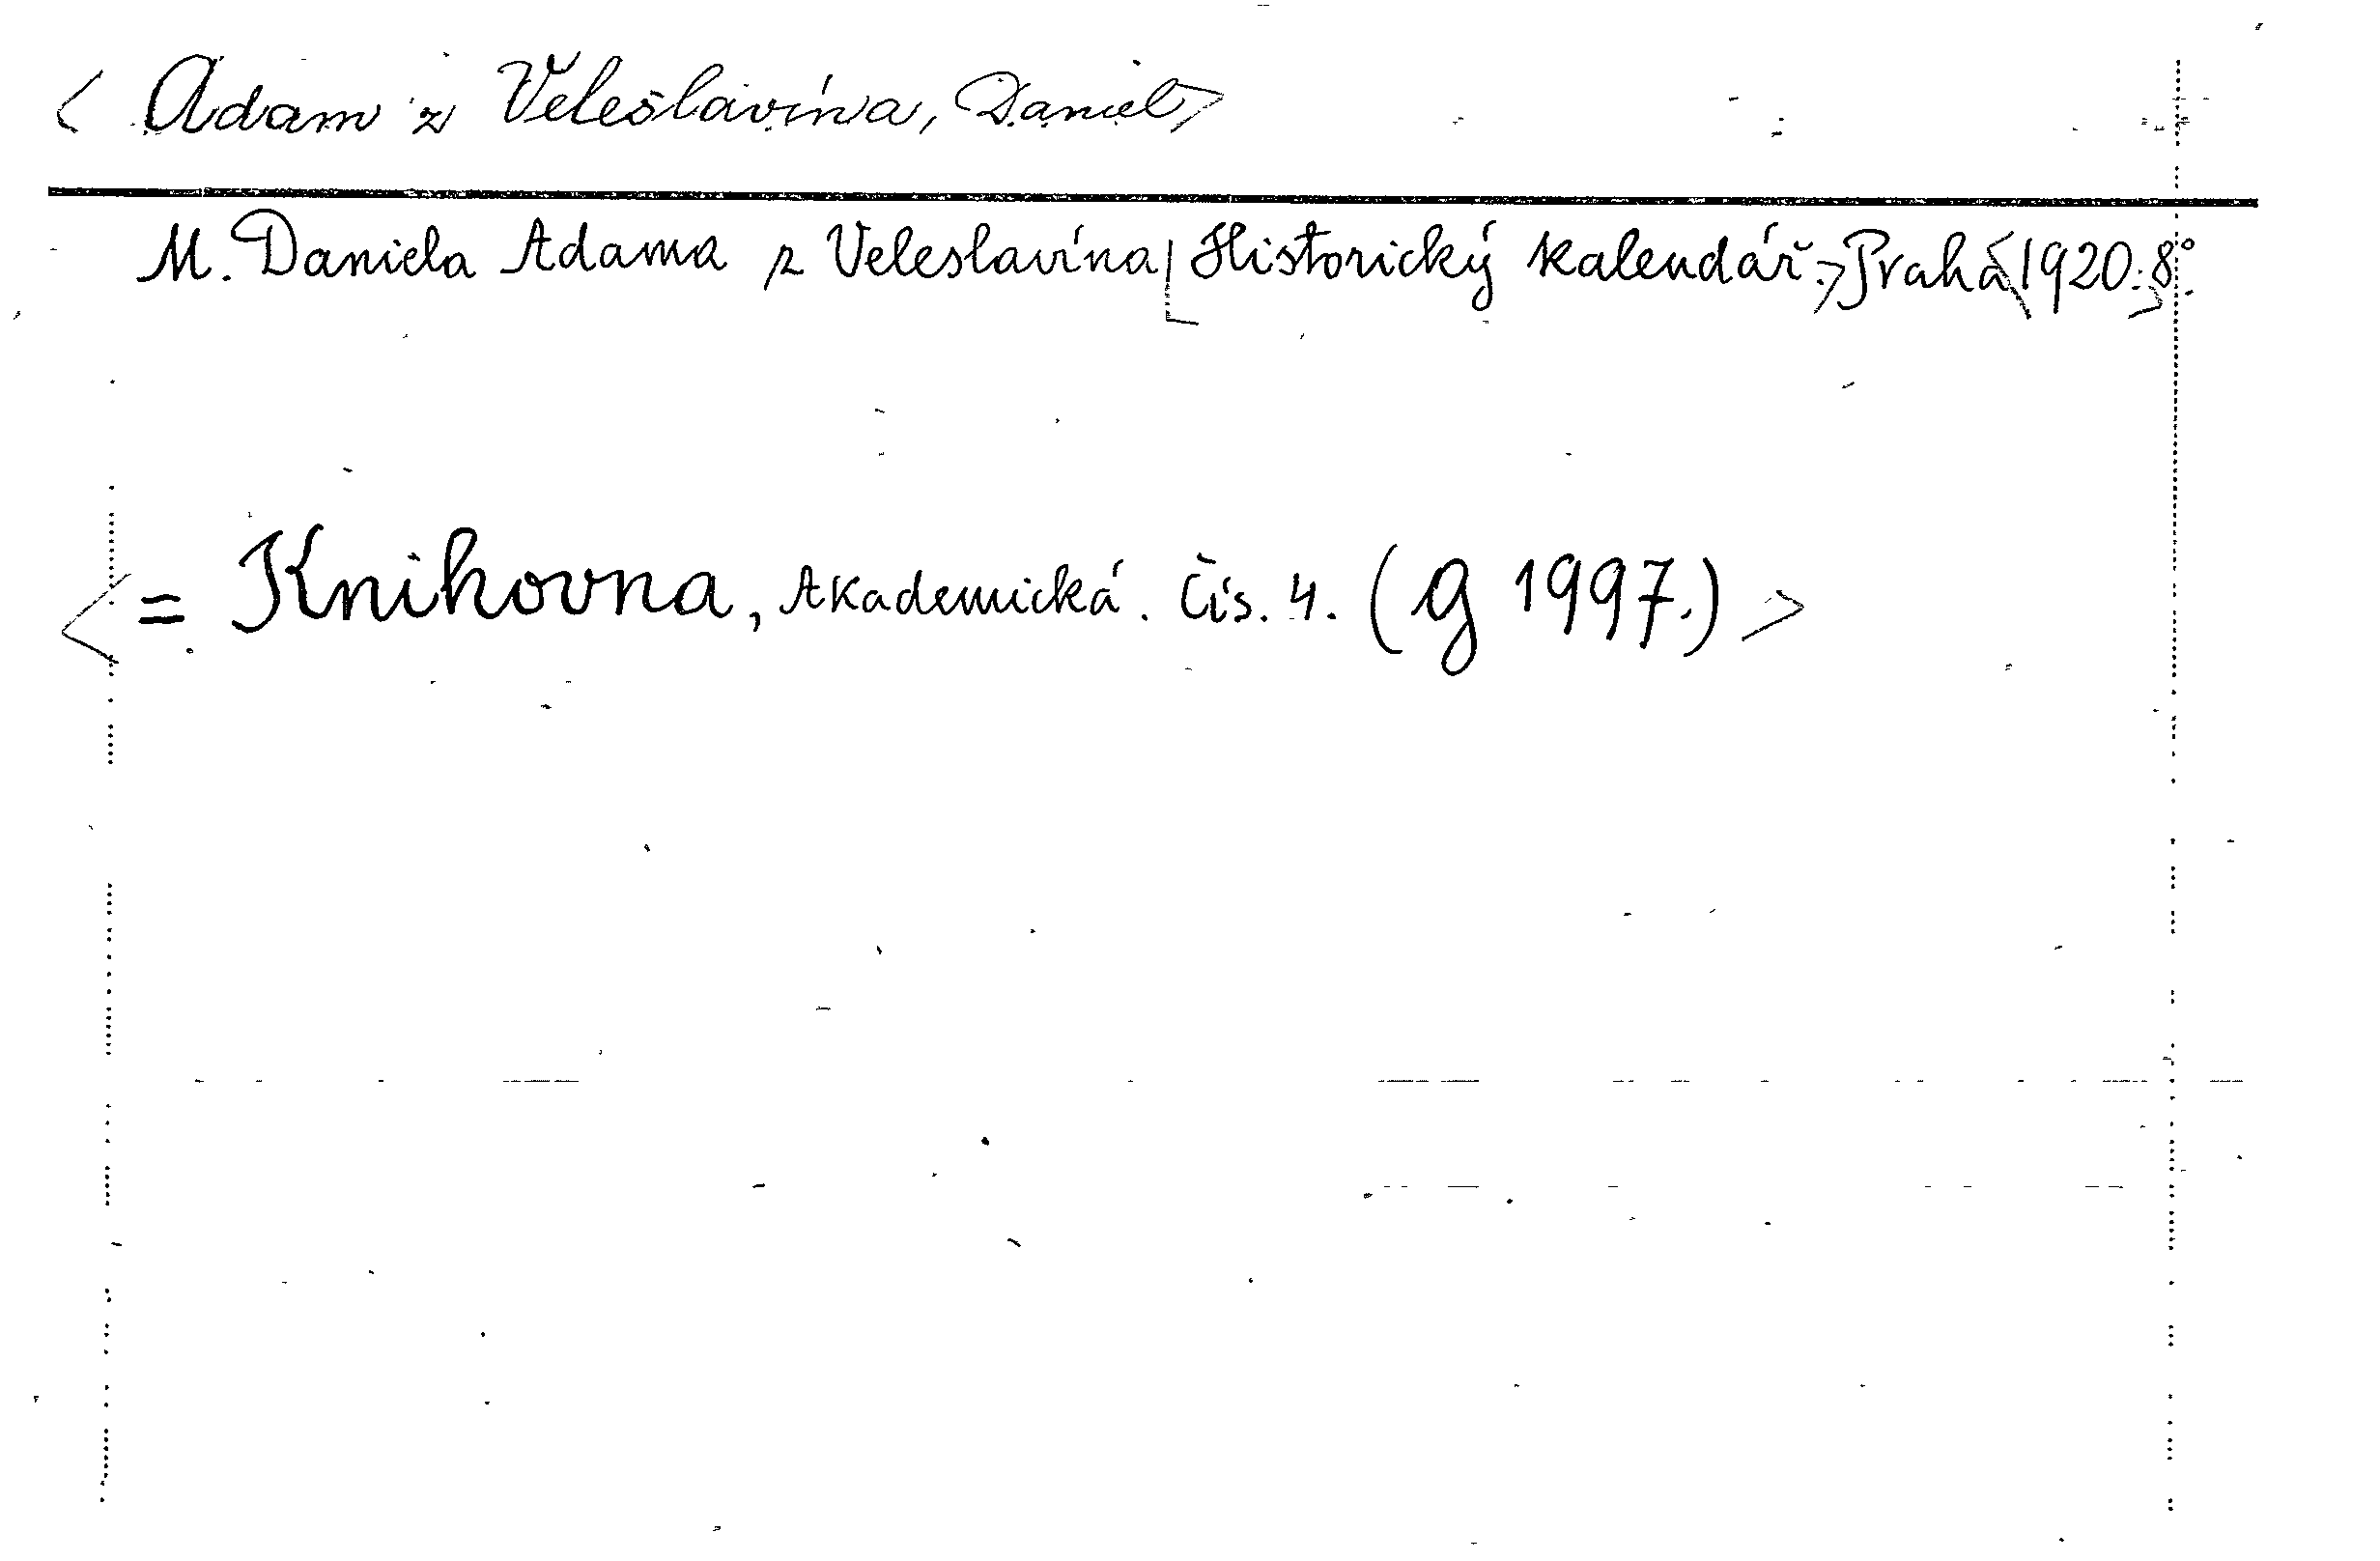 < Adam z Veleslavína, Daniel>
M. Daniela Adama z Veleslavína Historický kalendář. Praha 1920. 8°.
<= Knihovna, Akademická. Čís. 4. (g 1997.) >